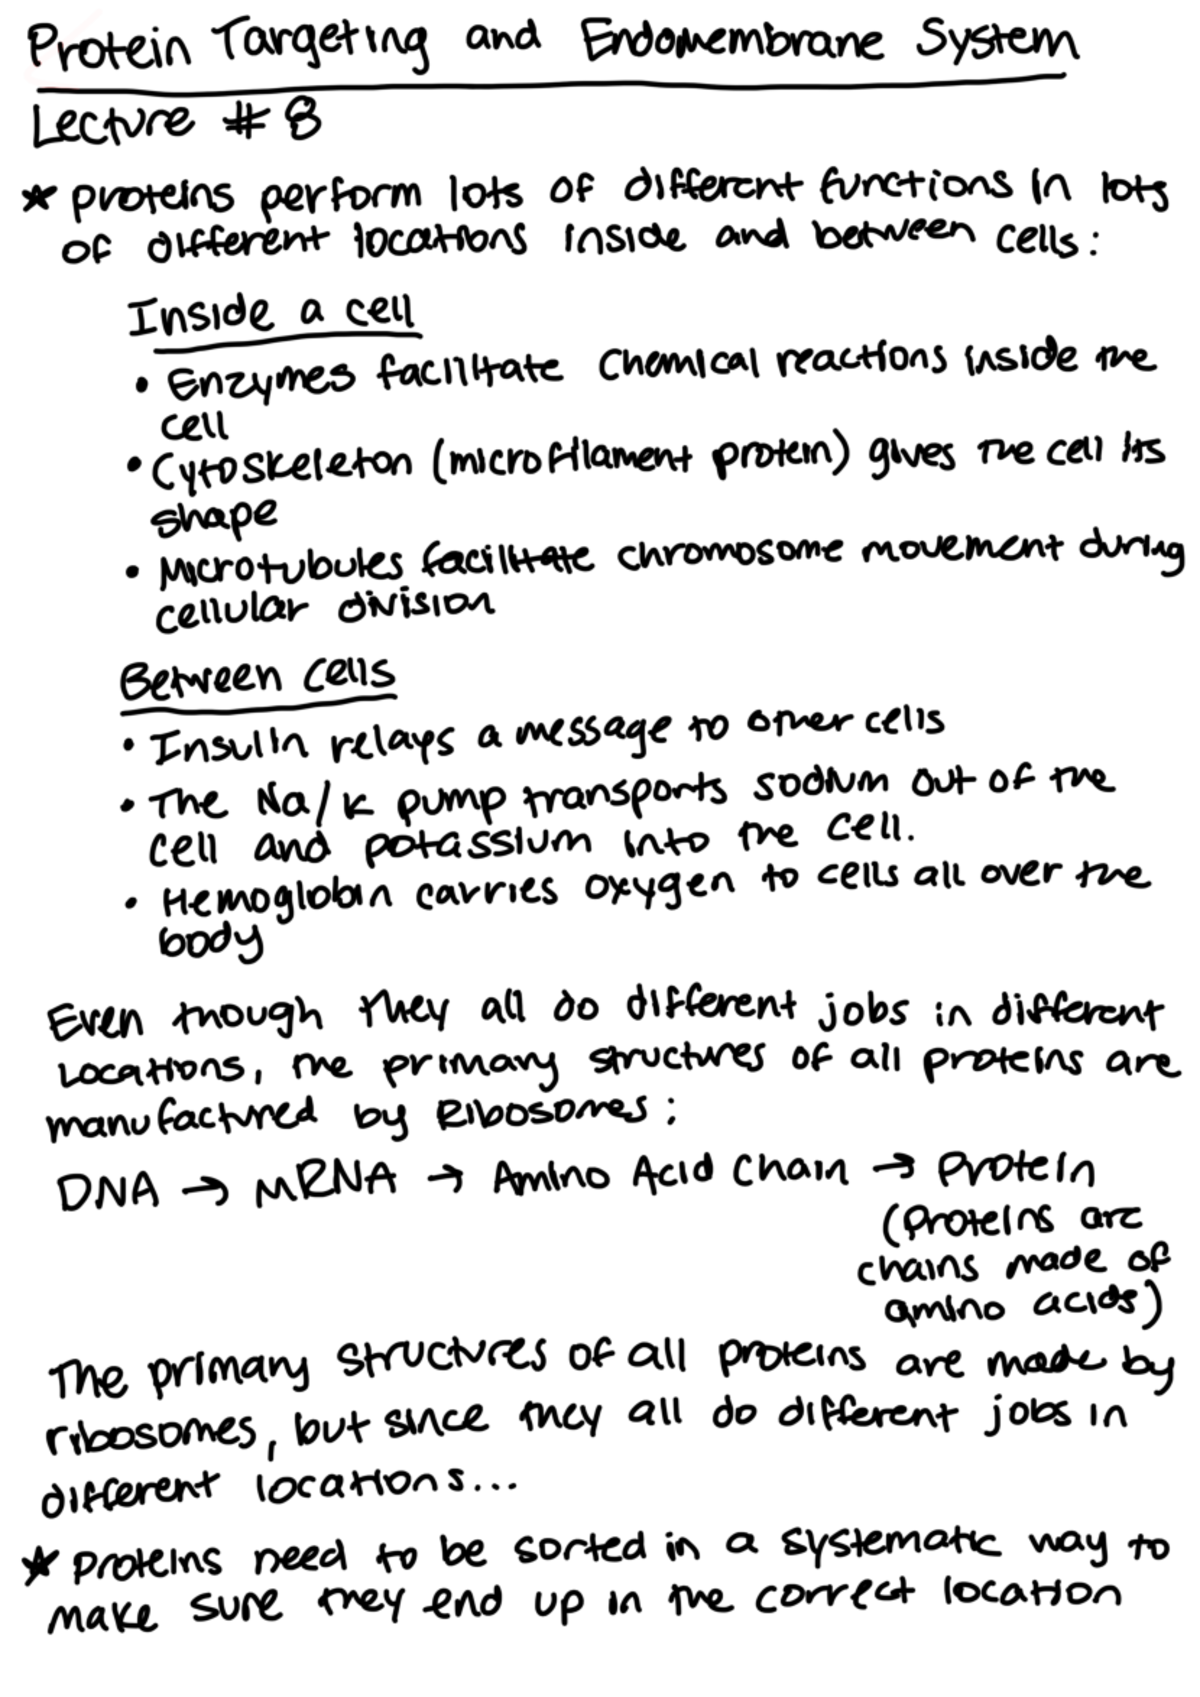 Protein Targeting and Endomembrane System
Lecture #8
★ proteins perform lots of different functions in lots
of different locations inside and between cells:
Inside a cell
• Enzymes facilitate chemical reactions inside the
cell
• Cytoskeleton (microfilament protein) gives the cell its
shape
• Microtubules facilitate chromosome movement during
cellular division
Between cells
• Insulin relays a message to other cells
• The Na/K pump transports sodium out of the
cell and potassium into the cell.
• Hemoglobin carries oxygen to cells all over the
body
Even though they all do different jobs in different
locations, the primary structures of all proteins are
manufactured by Ribosomes:
DNA → mRNA → Amino Acid Chain → Protein
(proteins are
chains made of
amino acids)
The primary structures of all proteins are made by
ribosomes, but since they all do different jobs in
different locations...
★ proteins need to be sorted in a systematic way to
make sure they end up in the correct location